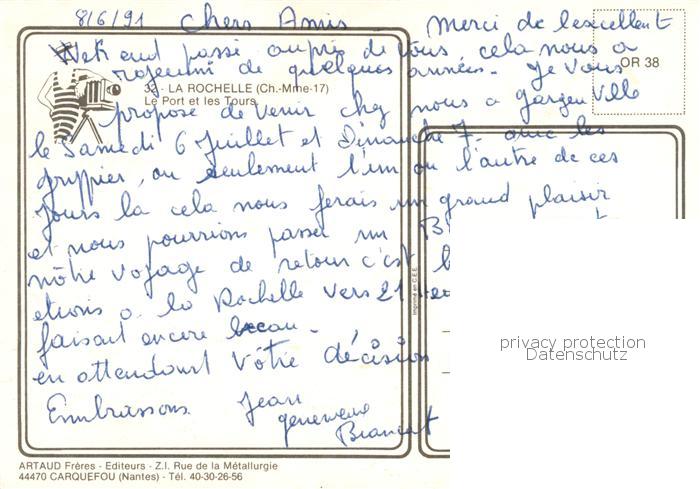 8/6/91 Chers Amis Merci de l'excellent
Week end passé auprès de vous, cela nous a
rajeuni de quelques années. Je vous
OR 38
32 - LA ROCHELLE (Ch.-Mme-17)
Le Port et les Tours.
propose de venir chez nous a gargenville
le Samedi 6 Juillet et Dimanche 7. avec les
, ou seulement l'un ou l'autre de ces
Jours la cela nous ferais un grand plaisir
et nous pourrions passer un
nôtre voyage de retour c'est
etions a la Rochelle vers 21
faisait encore beau.
en attendant Vôtre décision
Embrassons Jean
genevieve
Imprimé en C.E.E.
privacy protection
Datenschutz
ARTAUD Frères - Editeurs - Z.I. Rue de la Métallurgie
44470 CARQUEFOU (Nantes) - Tél. 40-30-26-56